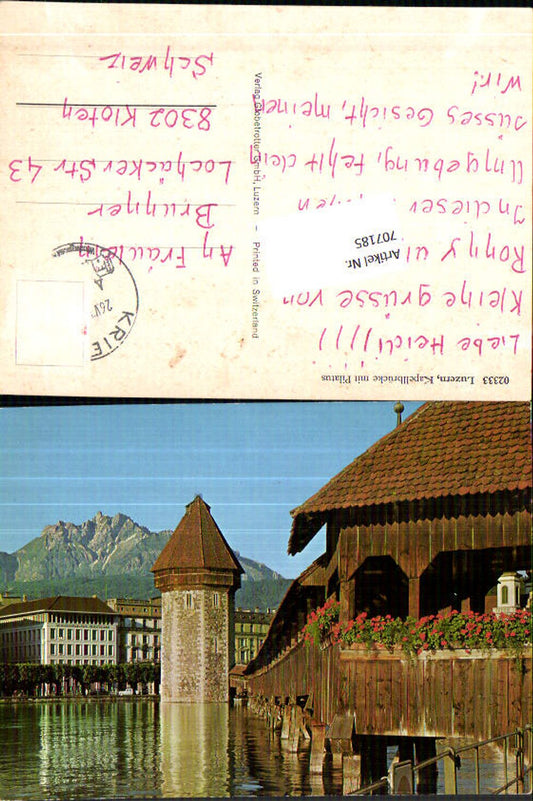 02333 Luzern, Kapellbrücke mit Pilatus
Liebe Heidi!)))))
Kleine grüsse von
Ronny
In dieser
Umgebung, fehlt dein
süsses Gesicht, meinen
Wir!
Artikel Nr.
707185
Verlag Globetrotter GmbH, Luzern – Printed in Switzerland
KRIE
An Fräulein
Brunner
Lochäcker Str 43
8302 Kloten
Schweiz